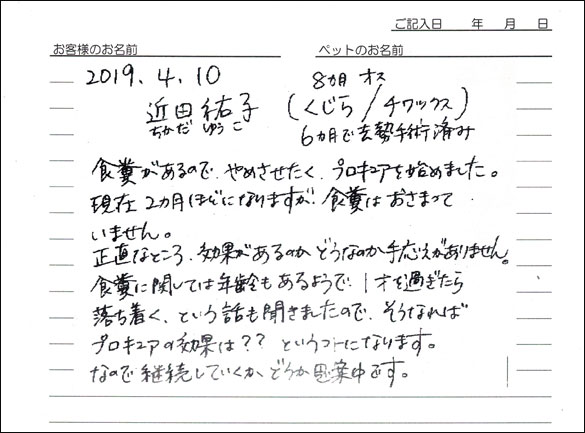 ご記入日 年 月 日
お客様のお名前 ペットのお名前
2019.4.10 8カ月 オス
近田祐子 (くじら/チワックス)
ちかだ ゆうこ 6カ月で去勢手術済み
食糞があるので、やめさせたく、プロキュアを始めました。
現在2カ月ほどになりますが、食糞はおさまって
いません。
正直なところ、効果があるのかどうなのか手応えがありません。
食糞に関しては年齢もあるようで、1才を過ぎたら
落ち着く、という話も聞きましたので、そうなれば
プロキュアの効果は??というコトになります。
なので継続していくか、どうか思案中です。